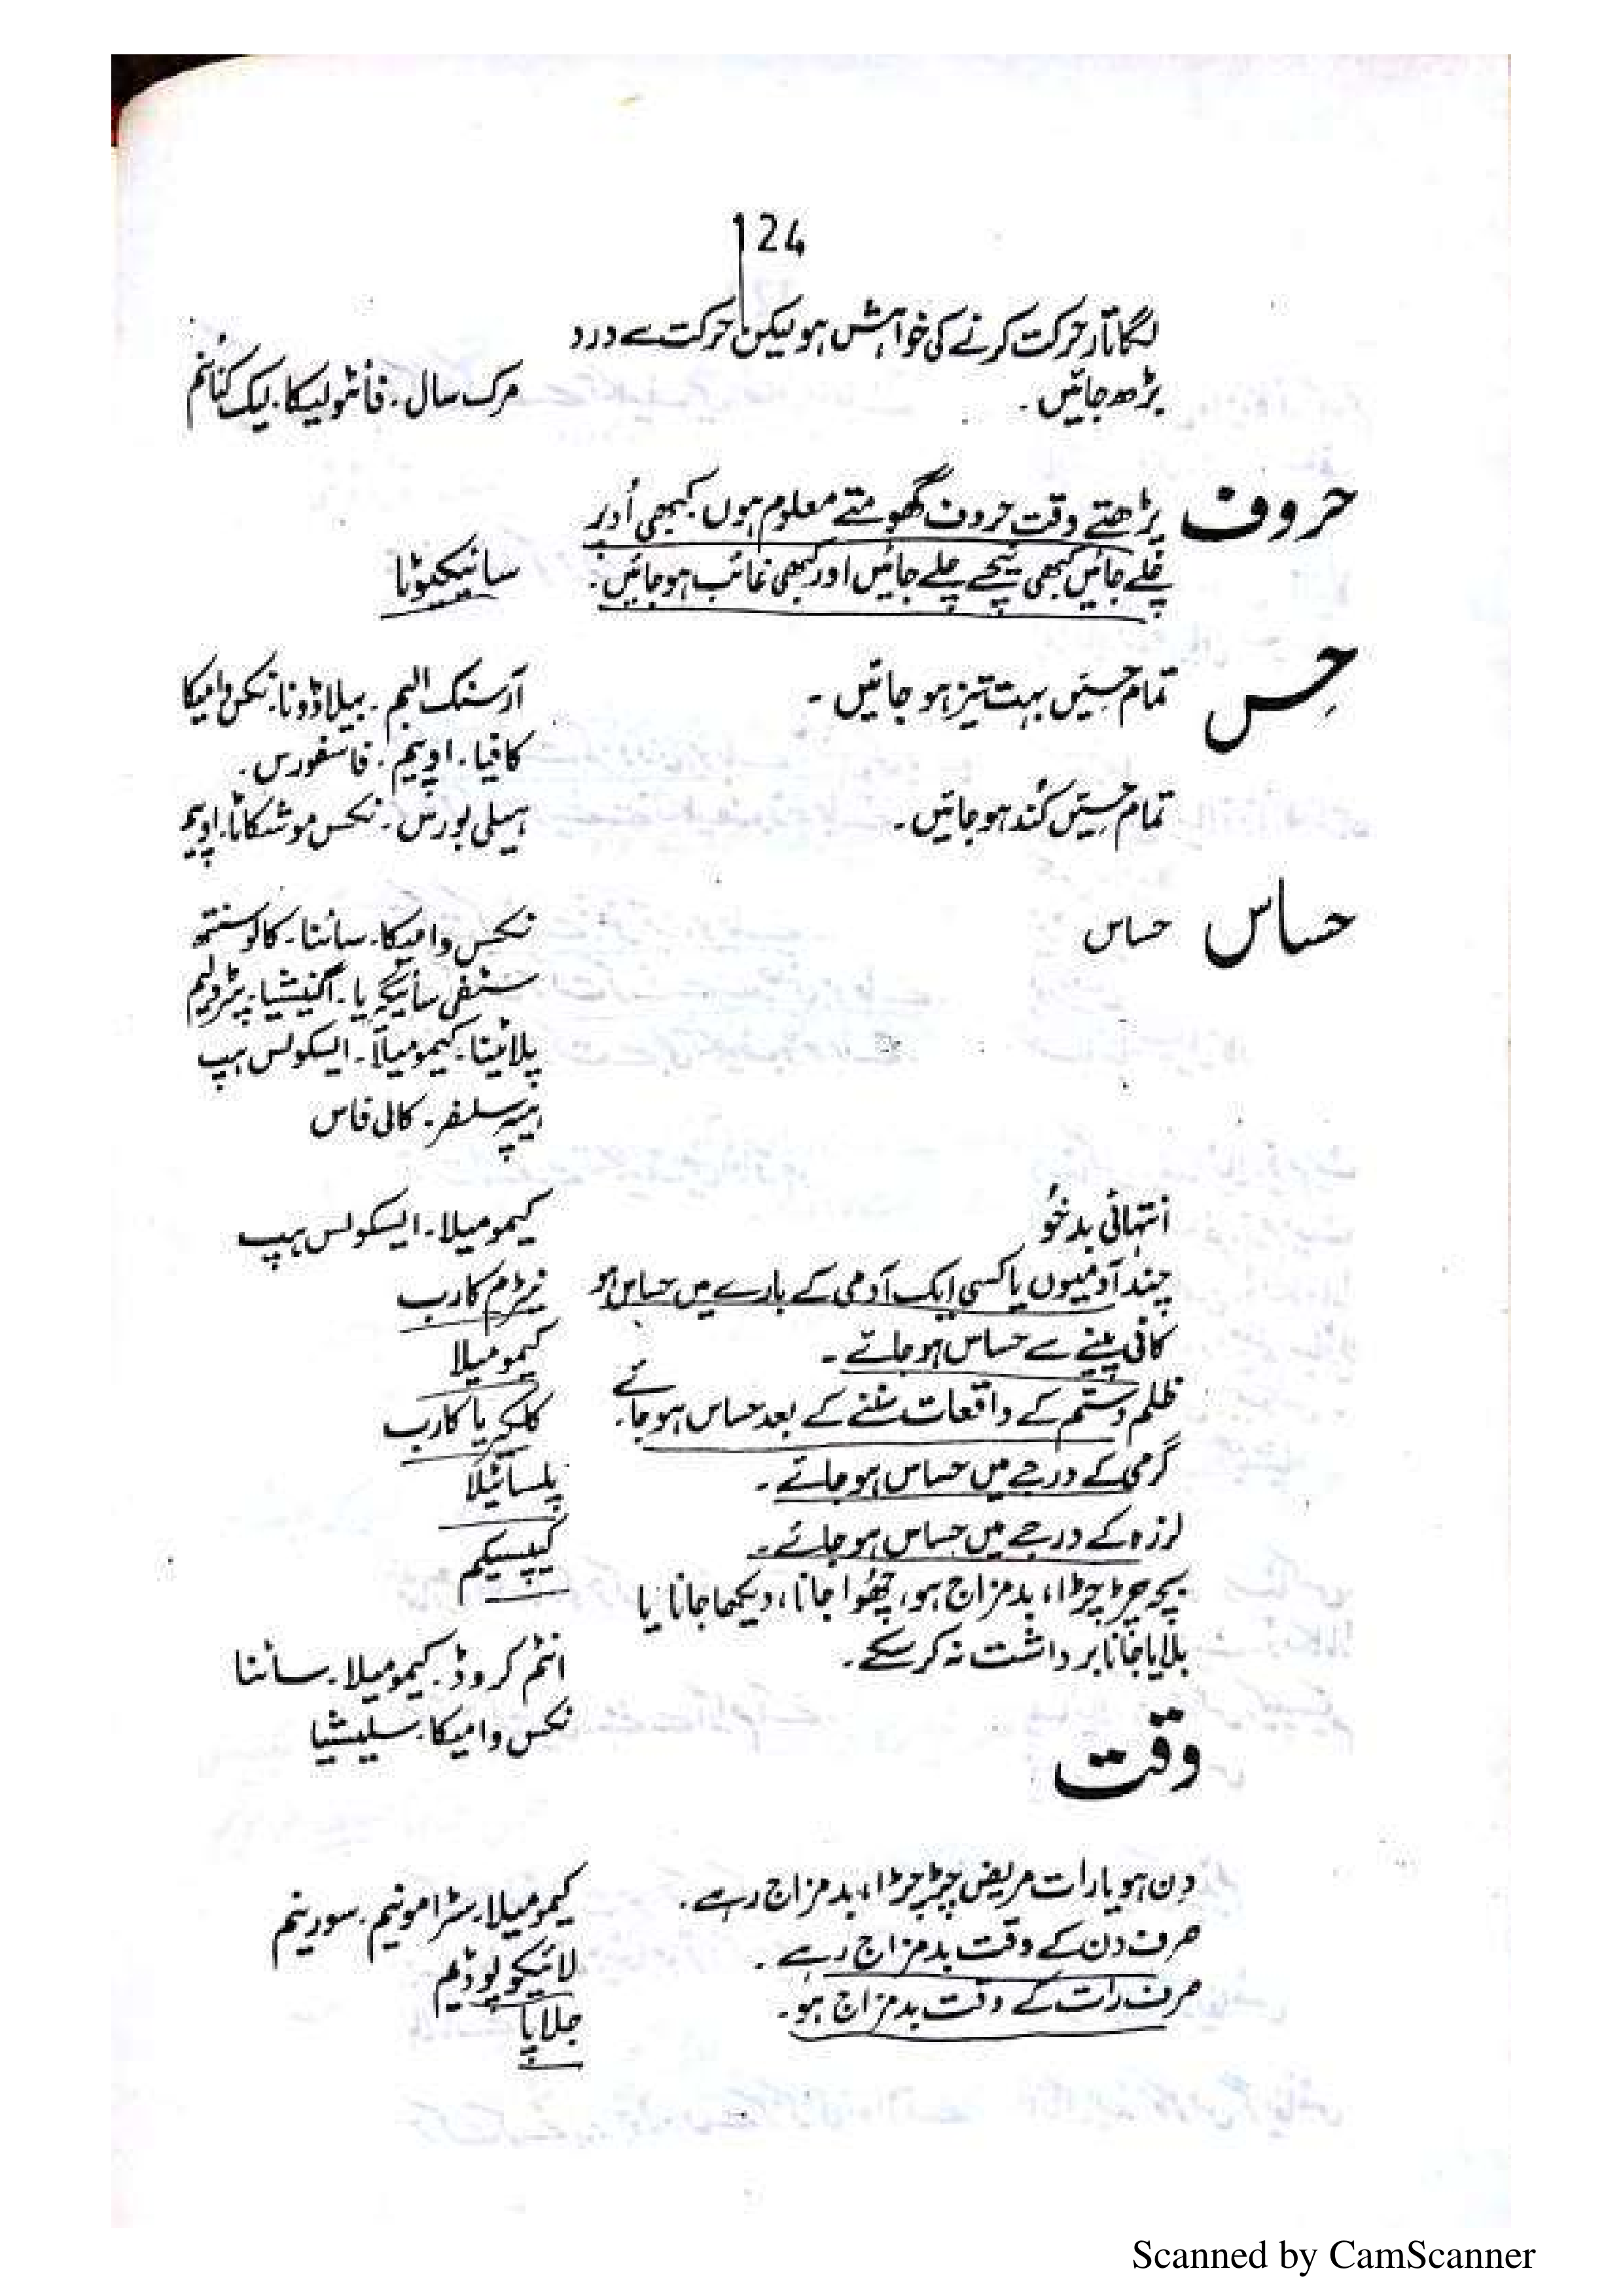 124
لگاتار حرکت کرنے کی خواہش ہو لیکن حرکت سے درد
بڑھ جائیں۔ مرک سال۔ فائٹولیکا۔ لیک کنائنم
حروف پڑھتے وقت حروف گھومتے معلوم ہوں۔ کبھی اُوپر
چلے جائیں کبھی نیچے چلے جائیں اور کبھی غائب ہو جائیں۔ سائیکیوٹا
حِس تمام حسیں بہت تیز ہو جائیں۔ آرسنک البم۔ بیلاڈونا۔ نکس وامیکا
کافیا۔ اوپیم۔ فاسفورس۔
تمام حسیں کُند ہو جائیں۔ ہیلی بورس۔ نکس موشکاٹا۔ اوپیم
حساس حساس نکس وامیکا۔ سائنا۔ کالوسنتھ
سٹفی سائیگریا۔ اگنیشیا۔ پٹرولیم
پلاٹینا۔ کیمومیلا۔ ایسکولس ہپ
ہیپر سلفر۔ کالی فاس
انتہائی بدخُو کیمومیلا۔ ایسکولس ہپ
چند آدمیوں یا کسی ایک آدمی کے بارے میں حساس ہو نیٹرم کارب
کافی پینے سے حساس ہو جائے۔ کیمومیلا
ظلم و ستم کے واقعات سُننے کے بعد حساس ہو جائے۔ کلکیریا کارب
گرمی کے درجے میں حساس ہو جائے۔ پلساٹیلا
لرزہ کے درجے میں حساس ہو جائے۔ کیپسیکم
بچہ چڑچڑا، بدمزاج ہو، چُھوا جانا، دیکھا جانا یا
بلایا جانا برداشت نہ کر سکے۔ انٹم کروڈ۔ کیمومیلا۔ سائنا
نکس وامیکا۔ سلیشیا
وقت
دن ہو یا رات مریض چڑچڑا، بدمزاج رہے۔ کیمومیلا۔ سٹرامونیم۔ سورینم
صرف دن کے وقت بدمزاج رہے۔ لائیکوپوڈیم
صرف رات کے وقت بدمزاج ہو۔ جلاپا
Scanned by CamScanner